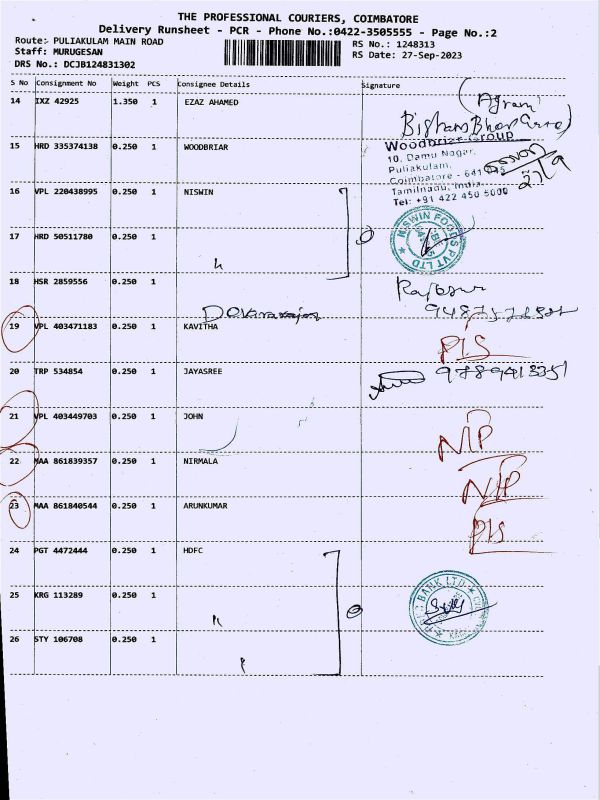 THE PROFESSIONAL COURIERS, COIMBATORE
Delivery Runsheet - PCR - Phone No.:0422-3505555 - Page No.:2
Route:- PULIAKULAM MAIN ROAD
RS No.: 1248313
Staff: MURUGESAN
RS Date: 27-Sep-2023
DRS No.: DCJB124831302
S No Consignment No Weight PCS Consignee Details Signature
14 IXZ 42925 1.350 1 EZAZ AHAMED
15 HRD 335374138 0.250 1 WOODBRIAR
Woodbriar Group
10, Damu Nagar,
Puliakulam,
Coimbatore - 641
Tamilnadu, India.
Tel: +91 422 450 5000
16 VPL 220438995 0.250 1 NISWIN
NISWIN FOODS PVT LTD
17 HRD 50511780 0.250 1
18 HSR 2859556 0.250 1
19 VPL 403471183 0.250 1 KAVITHA
PIS
20 TRP 534854 0.250 1 JAYASREE
9789413351
21 VPL 403449703 0.250 1 JOHN
NIP
22 MAA 861839357 0.250 1 NIRMALA
NIP
23 MAA 861840544 0.250 1 ARUNKUMAR
PIS
24 PGT 4472444 0.250 1 HDFC
25 KRG 113289 0.250 1
BANK LTD
26 STY 106708 0.250 1